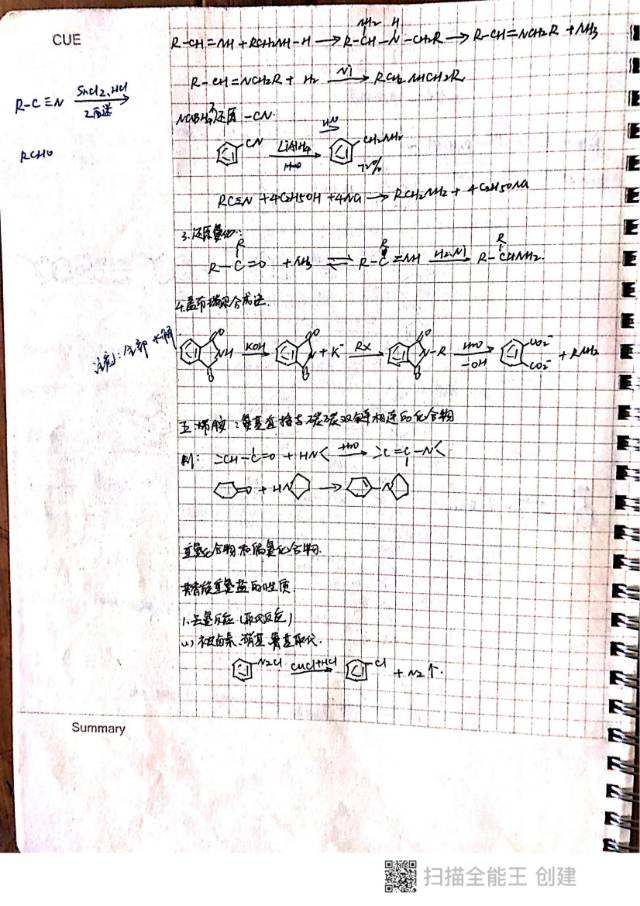 CUE
R-CH=NH + RCH2NH-H → R-CH(NH2)-N(H)-CH2R → R-CH=NCH2R + NH3
R-CH=NCH2R + H2 —Ni→ RCH2NHCH2R
R-C≡N —SnCl2, HCl→
RCHO
还原 -CN
CN —LiAlH4→ H2O CH2NH2 72%
RC≡N + 4C2H5OH + 4Na → RCH2NH2 + 4C2H5ONa
3.还原氨化:
R-C(R)=O + NH3 ⇌ R-C(R)=NH —H2, Ni→ R-C(R)HNH2.
4.盖布瑞尔合成法.
注意: 全部水解
NH —KOH→ N + K —RX→ N-R —H2O -OH→ CO2- CO2- + RNH2
五.烯胺: 氨基直接与碳碳双键相连的化合物
例: >CH-C=O + HN< —H2O→ >C=C-N<
=O + HN → N
重氮化合物和偶氮化合物.
芳香族重氮盐的性质
1.去氮反应 (取代反应)
(1) 被卤素.硝基.氰基取代.
N2Cl —CuCl+HCl→ Cl + N2↑.
Summary
扫描全能王 创建